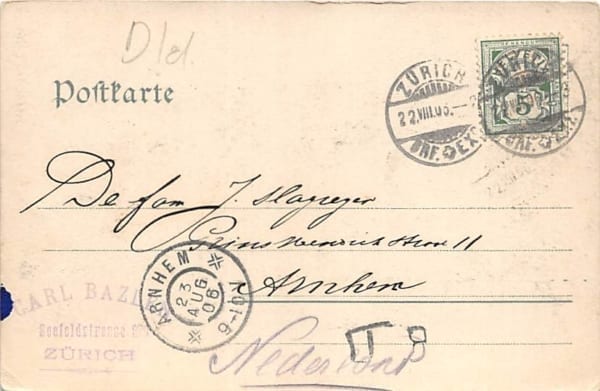 Dld.
Postkarte
ZÜRICH
22.VIII.06.
BRF. EXP.
5
De fam J. Slapreger
Prins Hendrik straat 11
Arnhem
Nederland
ARNHEM
23 AUG 06
9-10V
CARL BAZL
Seefeldstrasse
ZÜRICH